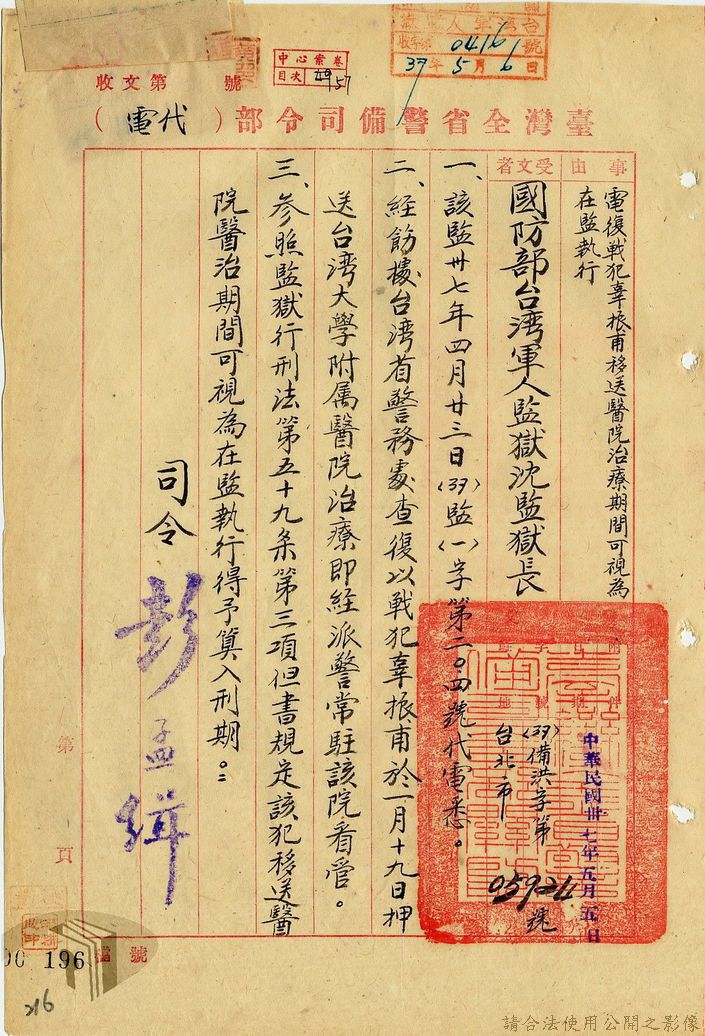 收文第　號
中心案卷
目次 49 57
0416
37年5月6日
臺灣全省警備司令部（代電）
事由
電復戰犯辜振甫移送醫院治療期間可視為
在監執行
受文者
國防部台湾軍人監獄沈監獄長
中華民國卅七年五月五日
(37)備洪字第05924號
台北市
一、該監卅七年四月廿三日(37)監(一)字第二〇四號代電悉。
二、經飭據台湾省警務處查復以戰犯辜振甫於一月十九日押
送台湾大學附属醫院治療即経派警常駐該院看管。
三、参照監獄行刑法第五十九条第三項但書規定該犯移送醫
院醫治期間可視為在監執行得予算入刑期。
司令 彭孟緝
第　頁
檔號
00 196
216
請合法使用公開之影像